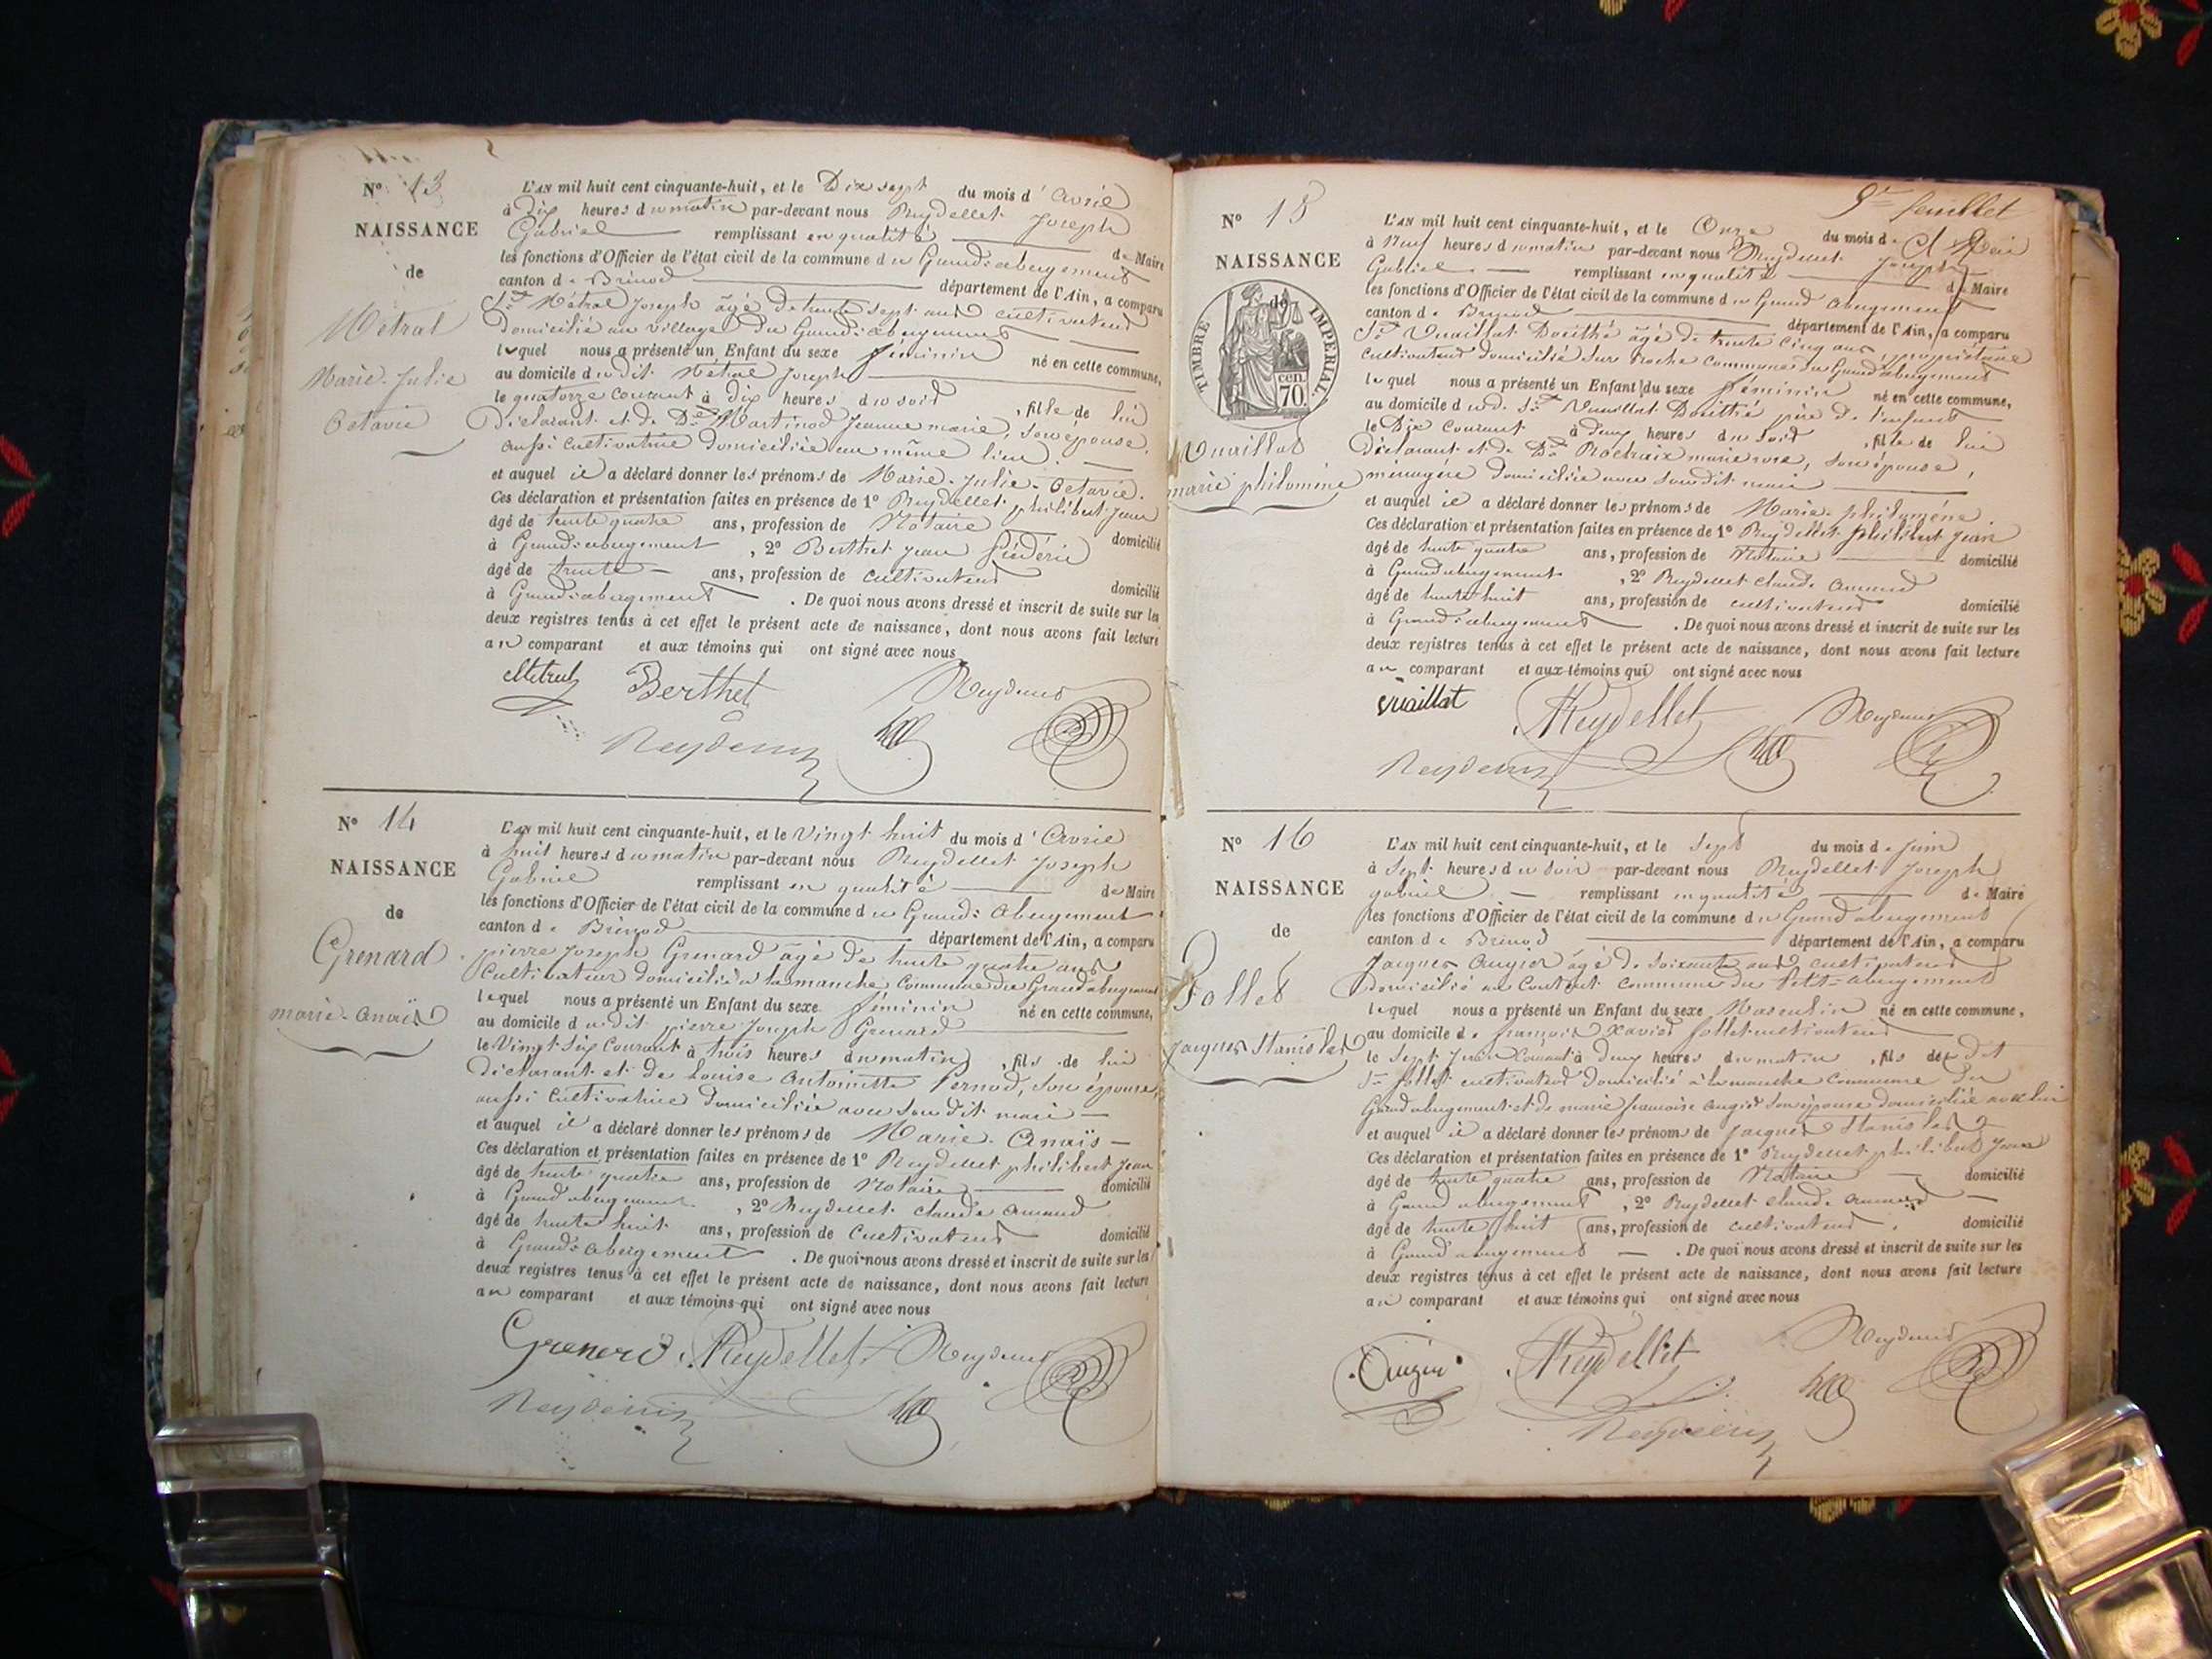 Nº 13
NAISSANCE
de
Métral
Marie-Julie
Octavie
L'AN mil huit cent cinquante-huit, et le Dix sept du mois d' avril
à Dix heures du matin par-devant nous Reydellet Joseph
Gabriel remplissant en qualité de Maire
les fonctions d'Officier de l'état civil de la commune du Grand-abergement
canton de Brénod département de l'Ain, a comparu
Sr Métral Joseph âgé de trente sept ans cultivateur
domicilié au village du Grand-abergement
lequel nous a présenté un Enfant du sexe féminin né en cette commune,
au domicile dudit Métral Joseph
le quatorze courant à dix heures du soir, fille de lui
Déclarant et de De Martinod Jeanne marie, son épouse
aussi cultivatrice domiciliée au même lieu.
et auquel il a déclaré donner les prénoms de Marie-Julie-Octavie.
Ces déclaration et présentation faites en présence de 1º Reydellet philibert Jean
âgé de trente quatre ans, profession de Notaire domicilié
à Grand-abergement, 2º Berthet Jean frédéric
âgé de trente ans, profession de cultivateur domicilié
à Grand-abergement. De quoi nous avons dressé et inscrit de suite sur les
deux registres tenus à cet effet le présent acte de naissance, dont nous avons fait lecture
au comparant et aux témoins qui ont signé avec nous
Métral Berthet
Nº 14
NAISSANCE
de
Grenard
marie-anaïs
L'AN mil huit cent cinquante-huit, et le vingt huit du mois d' Avril
à huit heures du matin par-devant nous Reydellet Joseph
Gabriel remplissant en qualité de Maire
les fonctions d'Officier de l'état civil de la commune du Grand-Abergement
canton de Brénod département de l'Ain, a comparu
pierre Joseph Grenard âgé de trente quatre ans
Cultivateur domicilié à la manche commune du Grand abergement
lequel nous a présenté un Enfant du sexe féminin né en cette commune,
au domicile dudit pierre Joseph Grenard
le Vingt six courant à trois heures du matin, fille de lui
Déclarant et de Louise Antoinette Pernod, son épouse,
aussi cultivatrice domiciliée avec son dit mari
et auquel il a déclaré donner les prénoms de Marie-Anaïs
Ces déclaration et présentation faites en présence de 1º Reydellet philibert Jean
âgé de trente quatre ans, profession de Notaire domicilié
à Grand abergement, 2º Reydellet claude armand
âgé de trente huit ans, profession de Cultivateur domicilié
à Grand-abergement. De quoi nous avons dressé et inscrit de suite sur les
deux registres tenus à cet effet le présent acte de naissance, dont nous avons fait lecture
au comparant et aux témoins qui ont signé avec nous
Grenard Reydellet
9e feuillet
Nº 15
NAISSANCE
de
TIMBRE IMPERIAL
70 cen.
Vuaillat
marie philomène
L'AN mil huit cent cinquante-huit, et le Onze du mois de Mai
à Neuf heures du matin par-devant nous Reydellet Joseph
Gabriel remplissant en qualité de Maire
les fonctions d'Officier de l'état civil de la commune du Grand abergement
canton de Brénod département de l'Ain, a comparu
Sr Vuaillat Dosithé âgé de trente cinq ans, propriétaire
cultivateur domicilié sur Roche commune du Grand abergement
lequel nous a présenté un Enfant du sexe féminin né en cette commune,
au domicile dud. Sr Vuaillat Dosithé père de l'enfant
le Dix courant à deux heures du soir, fille de lui
Déclarant et de De marie rose, son épouse,
ménagère domiciliée avec son dit mari
et auquel il a déclaré donner les prénoms de Marie-philomène
Ces déclaration et présentation faites en présence de 1º Reydellet philibert Jean
âgé de trente quatre ans, profession de Notaire domicilié
à Grand abergement, 2º Reydellet claude armand
âgé de trente huit ans, profession de cultivateur domicilié
à Grand-abergement. De quoi nous avons dressé et inscrit de suite sur les
deux registres tenus à cet effet le présent acte de naissance, dont nous avons fait lecture
au comparant et aux témoins qui ont signé avec nous
Vuaillat Reydellet
Nº 16
NAISSANCE
de
Follet
Jacques Stanislas
L'AN mil huit cent cinquante-huit, et le Sept du mois de Juin
à Sept heures du soir par-devant nous Reydellet Joseph
gabriel remplissant en qualité de Maire
les fonctions d'Officier de l'état civil de la commune du Grand abergement
canton de Brénod département de l'Ain, a comparu
Jacques Augier âgé de soixante ans cultivateur
domicilié au commune du Petit-abergement
lequel nous a présenté un Enfant du sexe Masculin né en cette commune,
au domicile de françois Xavier follet cultivateur
le Sept Juin courant à deux heures du matin, fils de dit
Sr follet cultivateur domicilié à la manche commune du
Grand abergement et de marie françoise augier son épouse domiciliée avec lui
et auquel il a déclaré donner les prénoms de Jacques Stanislas
Ces déclaration et présentation faites en présence de 1º Reydellet philibert Jean
âgé de trente quatre ans, profession de Notaire domicilié
à Grand abergement, 2º Reydellet claude armand
âgé de trente huit ans, profession de cultivateur domicilié
à Grand abergement. De quoi nous avons dressé et inscrit de suite sur les
deux registres tenus à cet effet le présent acte de naissance, dont nous avons fait lecture
au comparant et aux témoins qui ont signé avec nous
Augier Reydellet